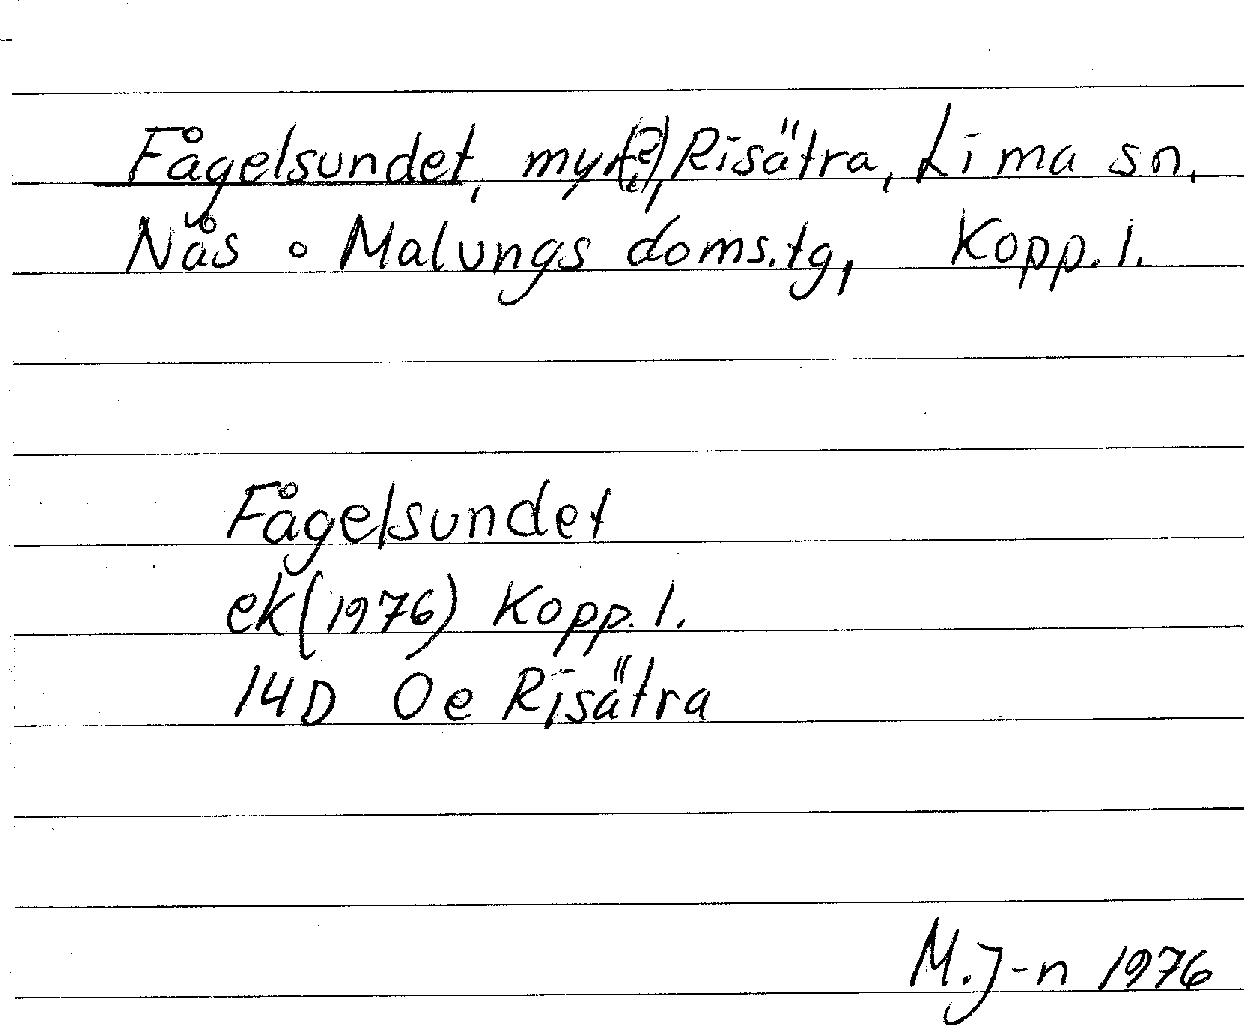 Fågelsundet, myr(?), Risätra, Lima sn,
Nås o Malungs doms.tg, Kopp. l.
Fågelsundet
ek(1976) Kopp. l.
14D 0e Risätra
M. J-n 1976